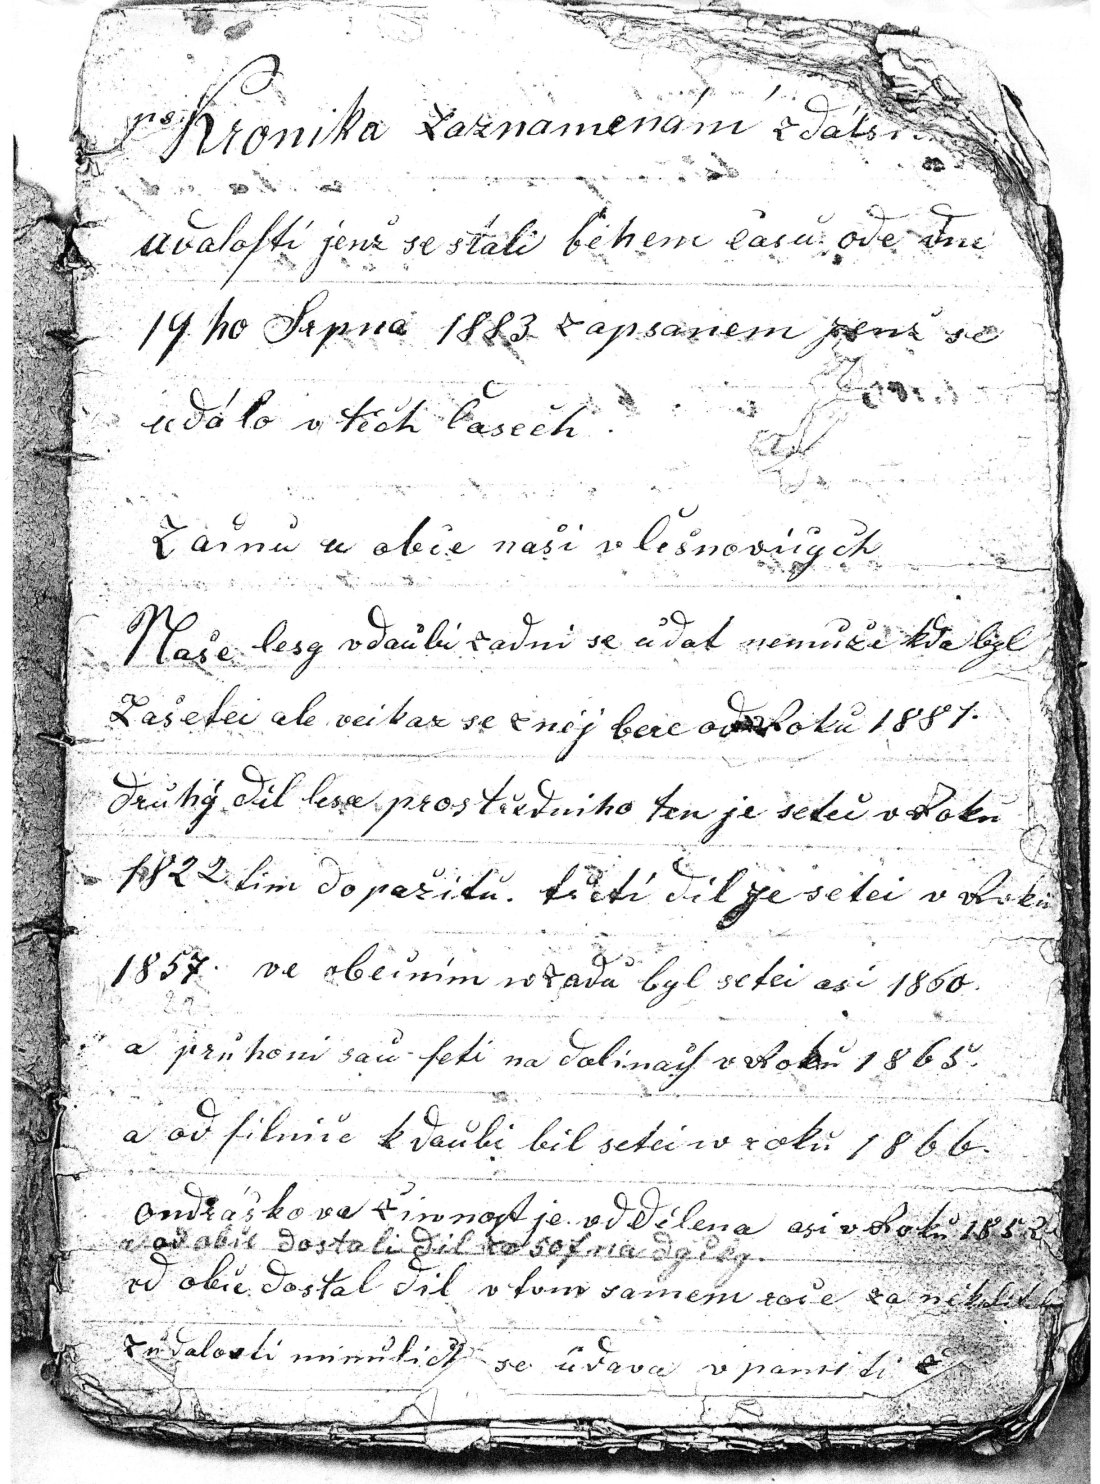 Kronika zaznamenání zdálsi
udalostí jenž se stali během času ode dne
19 ho Srpna 1883 zapsanem jenž se
událo v těch časech.
Začnu u obce naši v lešnovicých
Naše lesy vdaubi zadni se udat nemuže kda byl
Zasetei ale veikaz se z něj bere od Roku 1887.
druhý díl lesa prostředniho ten je setei v Roku
1822 tim do pažitu. třetí díl je setei v Roku
1857. ve obecním wzadu byl setei asi 1860.
a pruhoni sau seti na dolinach v Roku 1865.
a od silnice k daubi bil setei w roku 1866.
ondráškova činnost je oddělena asi v Roku 1852
a od obce dostali díl na dýlky.
od obce dostal díl v tom samem roce za
z události minulich se udava v paměti